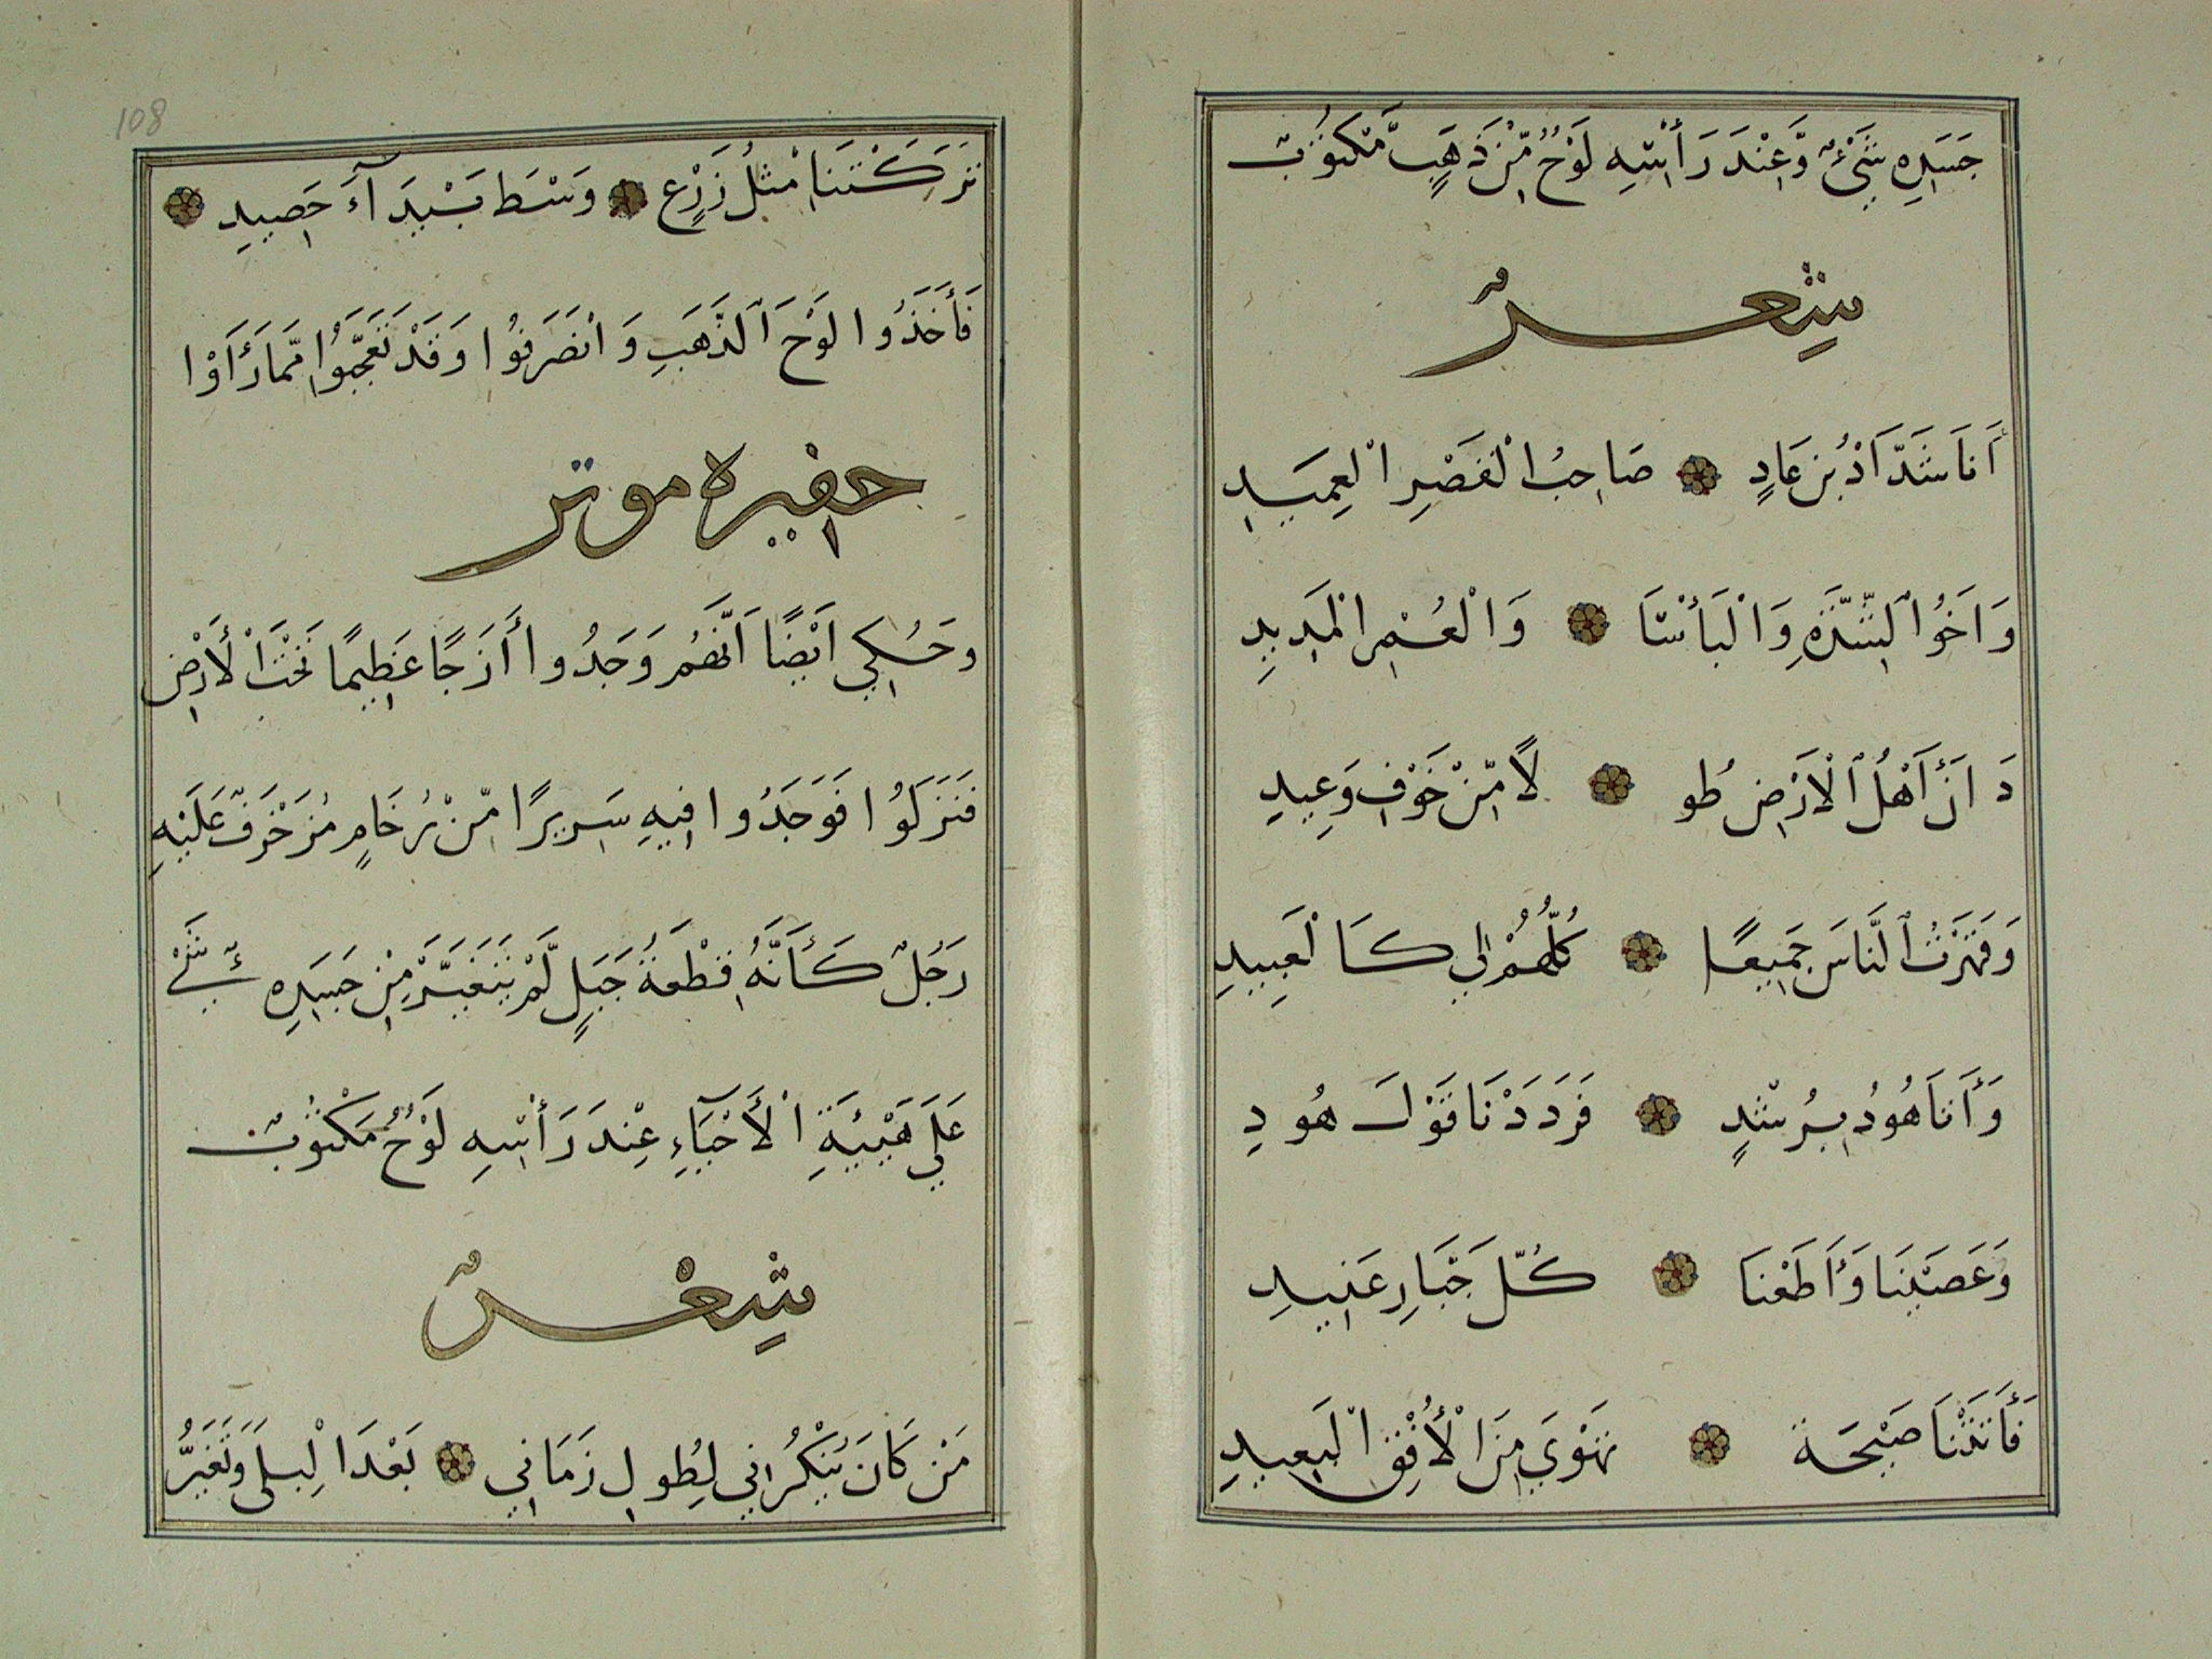 جَسَدِهِ شَيْءٌ وَّعِنْدَ رَأْسِهِ لَوْحٌ مِّنْ ذَهَبٍ مَّكْتُوْبٌ
شِعْرٌ
أَنَا شَدَّادُ بْنُ عَادٍ ۞ صَاحِبُ الْقَصْرِ الْعَمِيدِ
وَاَخُوا الشِّدَّةِ وَالْبَأْسَا ۞ وَالْعُمْرِ الْمَدِيدِ
دَانَ أَهْلُ الْأَرْضِ طُو ۞ لًا مِّنْ خَوْفِ وَعِيدِ
وَقَهَرْتُ النَّاسَ جَمِيعًا ۞ كُلُّهُمْ لِي كَالْعَبِيدِ
وَأَنَا هُودُ بِرُشْدٍ ۞ فَرَدَدْنَا قَوْلَ هُودِ
وَعَصَيْنَا وَأَطَعْنَا ۞ كُلَّ جَبَّارِ عَنِيدِ
فَأَتَتْنَا صَيْحَة ۞ تَهْوَي مِنَ الْأُفُقِ الْبَعِيدِ
108
تَرَكَتْنَا مِثْلُ زَرْعٍ ۞ وَسْطَ بَيْدَآءَ حَصِيدِ ۞
فَأَخَذُوا لَوْحَ الذَّهَبِ وَانْصَرَفُوا وَقَدْ تَعَجَّبُوا مِمَّا رَأَوْا
حفيره موتر
وحُكِي اَيْضًا اَنَّهُمْ وَجَدُوا أَزَجًا عَظِيمًا تَحْتَ الْأَرْضِ
فَنَزَلُوا فَوَجَدُوا فِيهِ سَرِيرًا مِّنْ رُخَامٍ مُزَخْرَفٌ عَلَيْهِ
رَجُلٌ كَأَنَّهُ قِطْعَةُ جَبَلٍ لَّمْ يَتَغَيَّرْ مِنْ جَسَدِهِ شَيْءٌ
عَلَي هَيْئَةِ الْأَحْيَآءِ عِنْدَ رَأْسِهِ لَوْحٌ مَكْتُوْبٌ
شِعْرٌ
مَنْ كَانَ يُنْكُرُانِي لِطُولِ زَمَانِي ۞ بَعْدَ الْبِلَى وَتَغَيُّرُ